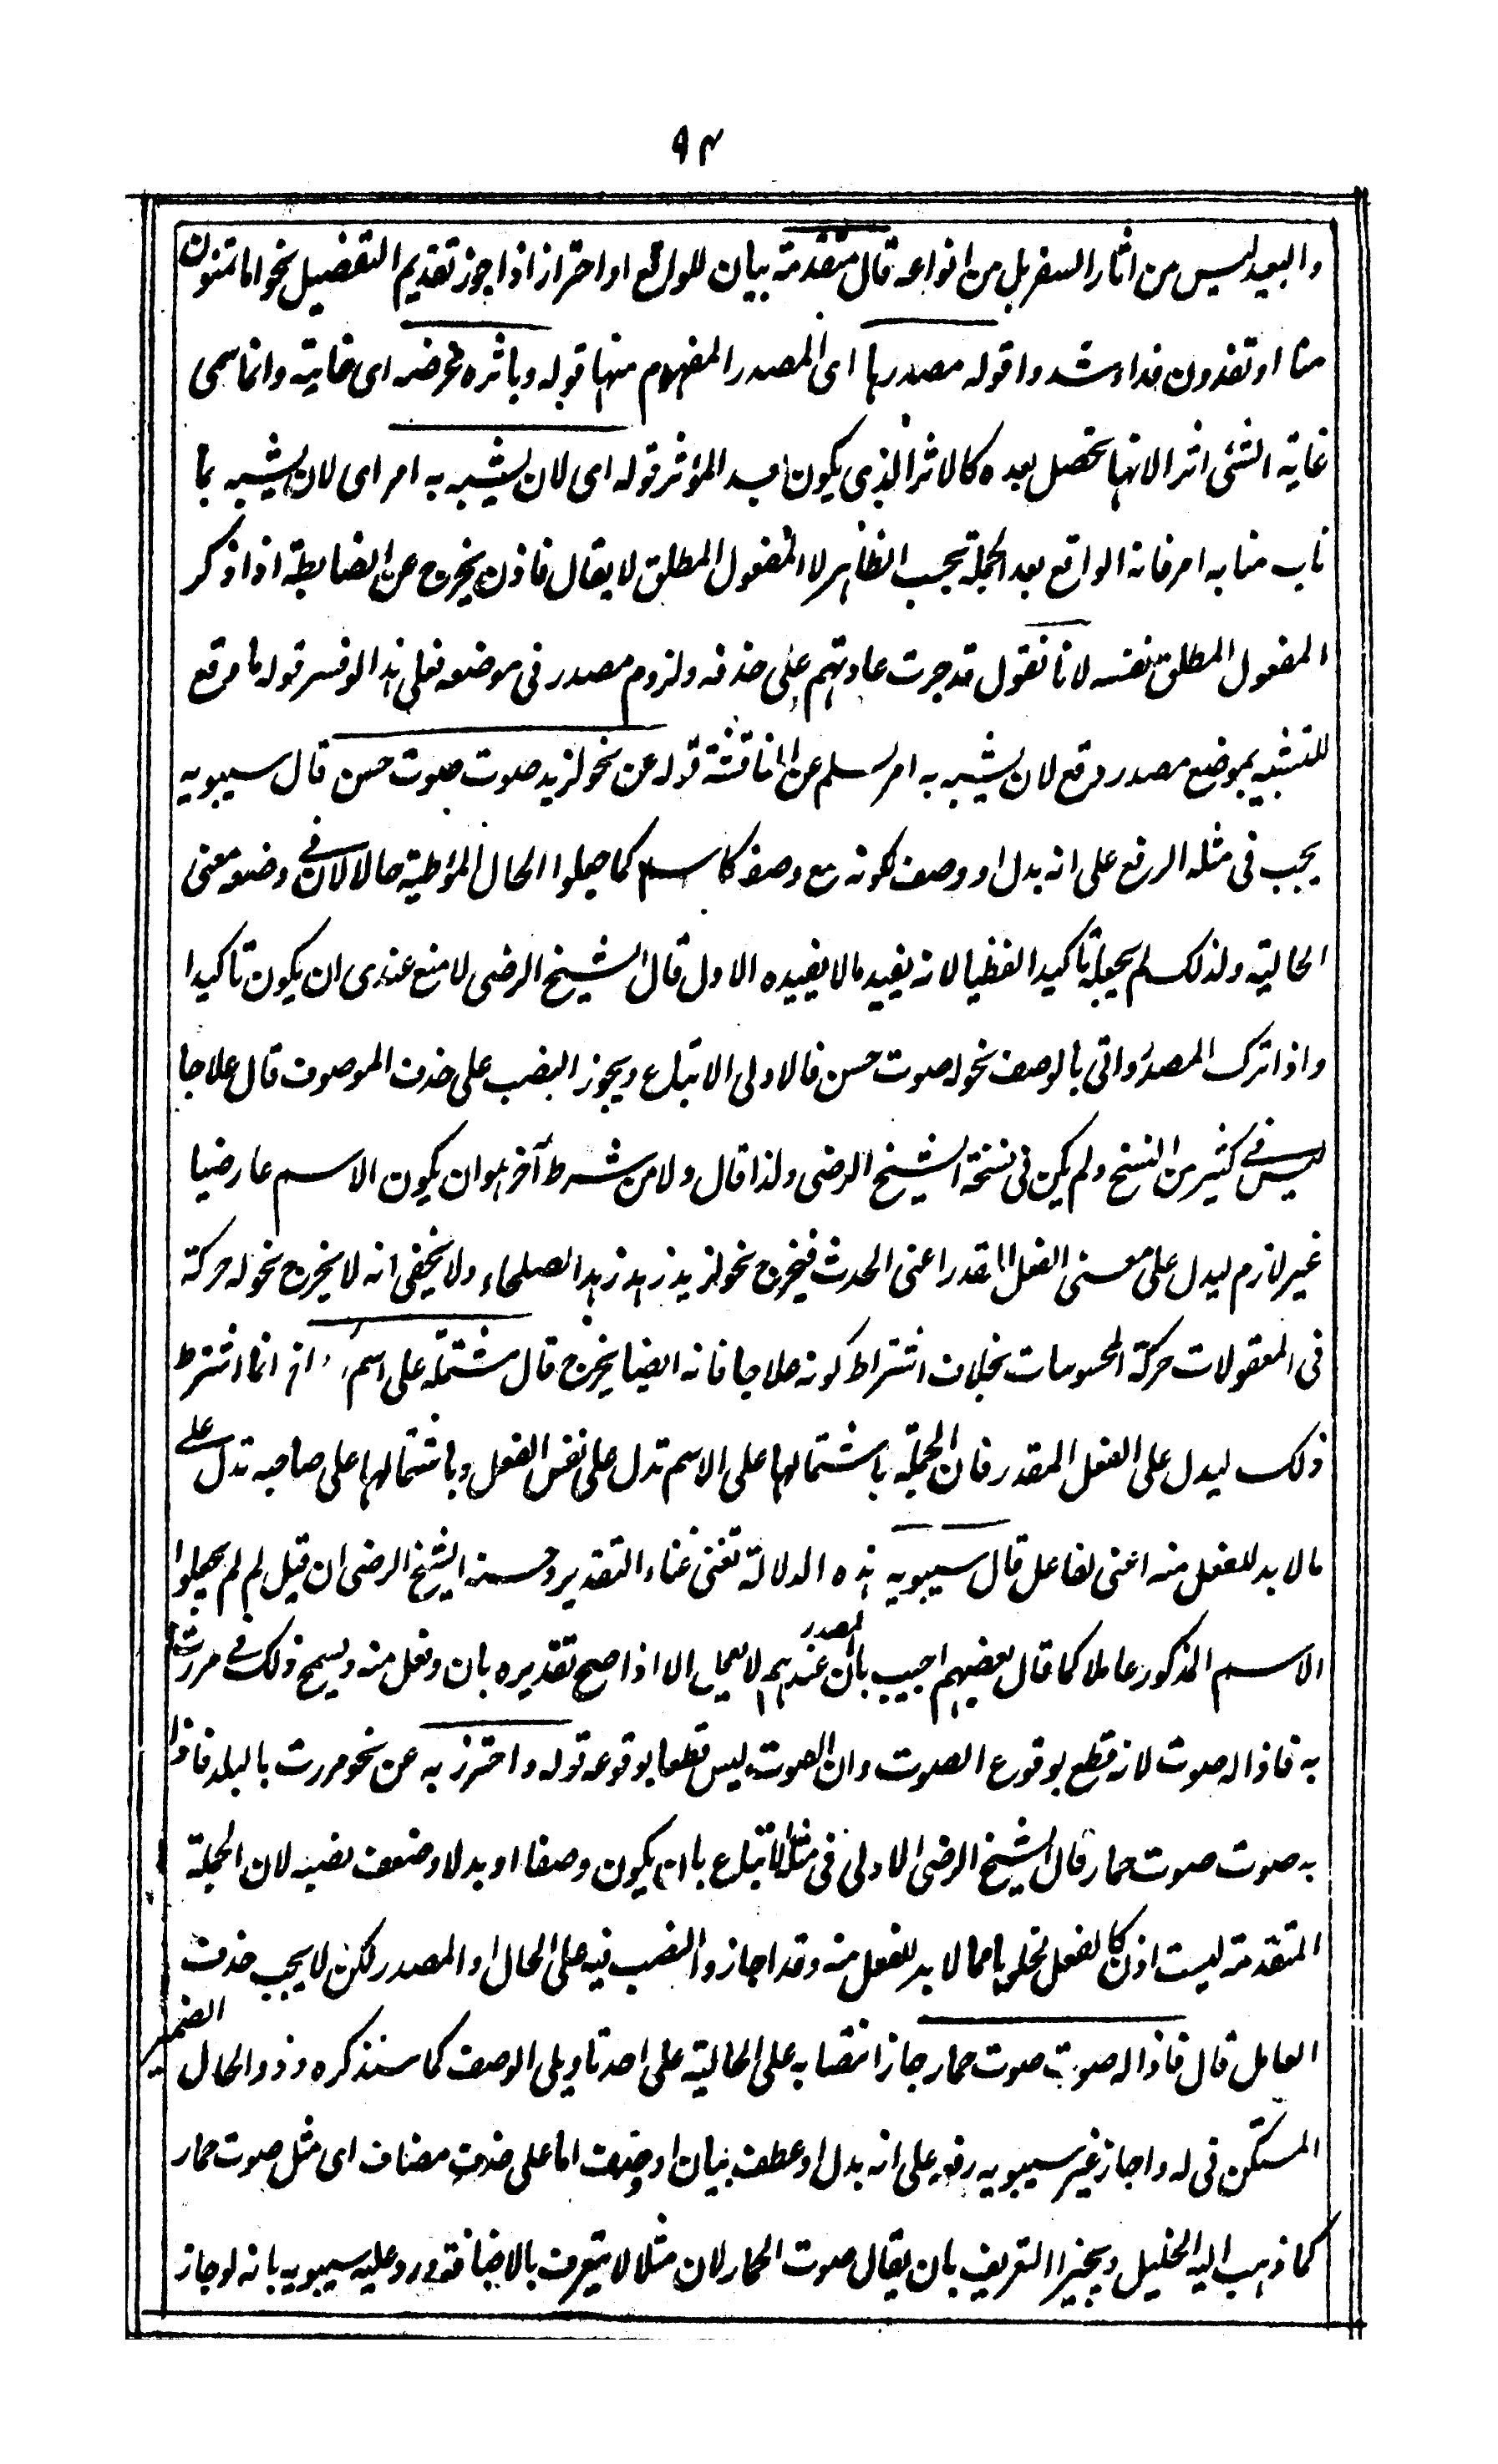 ٩٤
والبعيد ليس من اثار السفر بل من انواعه قال متقدمة بيان للواقع او احتراز اذا جوز تقديم التفضيل نحو اما تمنون
منا او تفدون فداء فشدوا قوله مصدرها اى المصدر المفهوم منها قوله وباثره غرضه اى غايته وانما سمى
غاية الشئ اثرا لانها تحصل بعده كالاثر الذى يكون بعد المؤثر قوله اى لان يشبه به امر اى لان يشبه بما
ناب منابه امر فانه الواقع بعد الجملة بحسب الظاهر لا المفعول المطلق لا يقال فاذن يخرج عن الضابطة اذا ذكر
المفعول المطلق نفسه لانا نقول قد جرت عادتهم على حذفه ولزوم مصدر فى موضعه فعلى هذا لو فسر قوله ما وقع
للتشبيه بموضع مصدر وقع لان يشبه به امر سلم عن المناقشة قوله عن نحو لزيد صوت صوت حسن قال سيبويه
يجب فى مثله الرفع على انه بدل او وصف لكونه مع وصفه كاسم كما جعلوا الحال الموطية حالا لان فى وضعه معنى
الحالية ولذلك لم يجعله تاكيدا لفظيا لانه يفيد مالا يفيده الاول قال الشيخ الرضى لا منع عندى ان يكون تاكيدا
واذا ترك المصدر واتى بالوصف نحو له صوت حسن فالاولى الاتباع ويجوز النصب على حذف الموصوف قال علاجا
ليس فى كثير من النسخ ولم يكن فى نسخة الشيخ الرضى ولذا قال ولا من شرط آخر هو ان يكون الاسم عارضيا
غير لازم ليدل على معنى الفعل المقدر اعنى الحدث فيخرج نحو لزيد زهد زهد الصلحاء ولا يخفى انه لا يخرج نحو له حركة
فى المعقولات حركة المحسوسات بخلاف اشتراط كونه علاجا فانه ايضا يخرج قال مشتملة على اسم اه انما اشترط
ذلك ليدل على الفعل المقدر فان الجملة باشتمالها على الاسم تدل على نفس الفعل وباشتمالها على صاحبه تدل على
مالا بد للفعل منه اعنى الفاعل قال سيبويه هذه الدلالة تغنى غناء التقدير وحسنه الشيخ الرضى ان قيل لم لم يجعلوا
الاسم المذكور عاملا كما قال بعضهم اجيب بان المصدر عندهم لا يعمل الا اذا صح تقديره بان وفعل منه ويسمج ذلك فى مررت
به فاذا له صوت لانه قطع بوقوع الصوت وان الصوت ليس قطعا بوقوعه قوله واحترز به عن نحو مررت بالبلد فاذا
به صوت صوت حمار قال الشيخ الرضى الاولى فى مثله الاتباع بان يكون وصفا او بدلا وضعف نصبه لان الجملة
المتقدمة ليست اذن كالفعل لخلوها مما لا بد للفعل منه وقد اجازوا النصب فيه على الحال او المصدر لكن لا يجب حذف
العامل قال فاذا له صوت صوت حمار جاز انتصابه على الحالية على احد تاويلى الوصف كما سنذكره وذو الحال الضمير
المستكن فى له واجاز غير سيبويه رفعه على انه بدل او عطف بيان او وصف اما على حذف مضاف اى مثل صوت حمار
كما ذهب اليه الخليل ويجيز التعريف بان يقال صوت الحمار لان مثلا لا يتعرف بالاضافة ورد عليه سيبويه بانه لو جاز